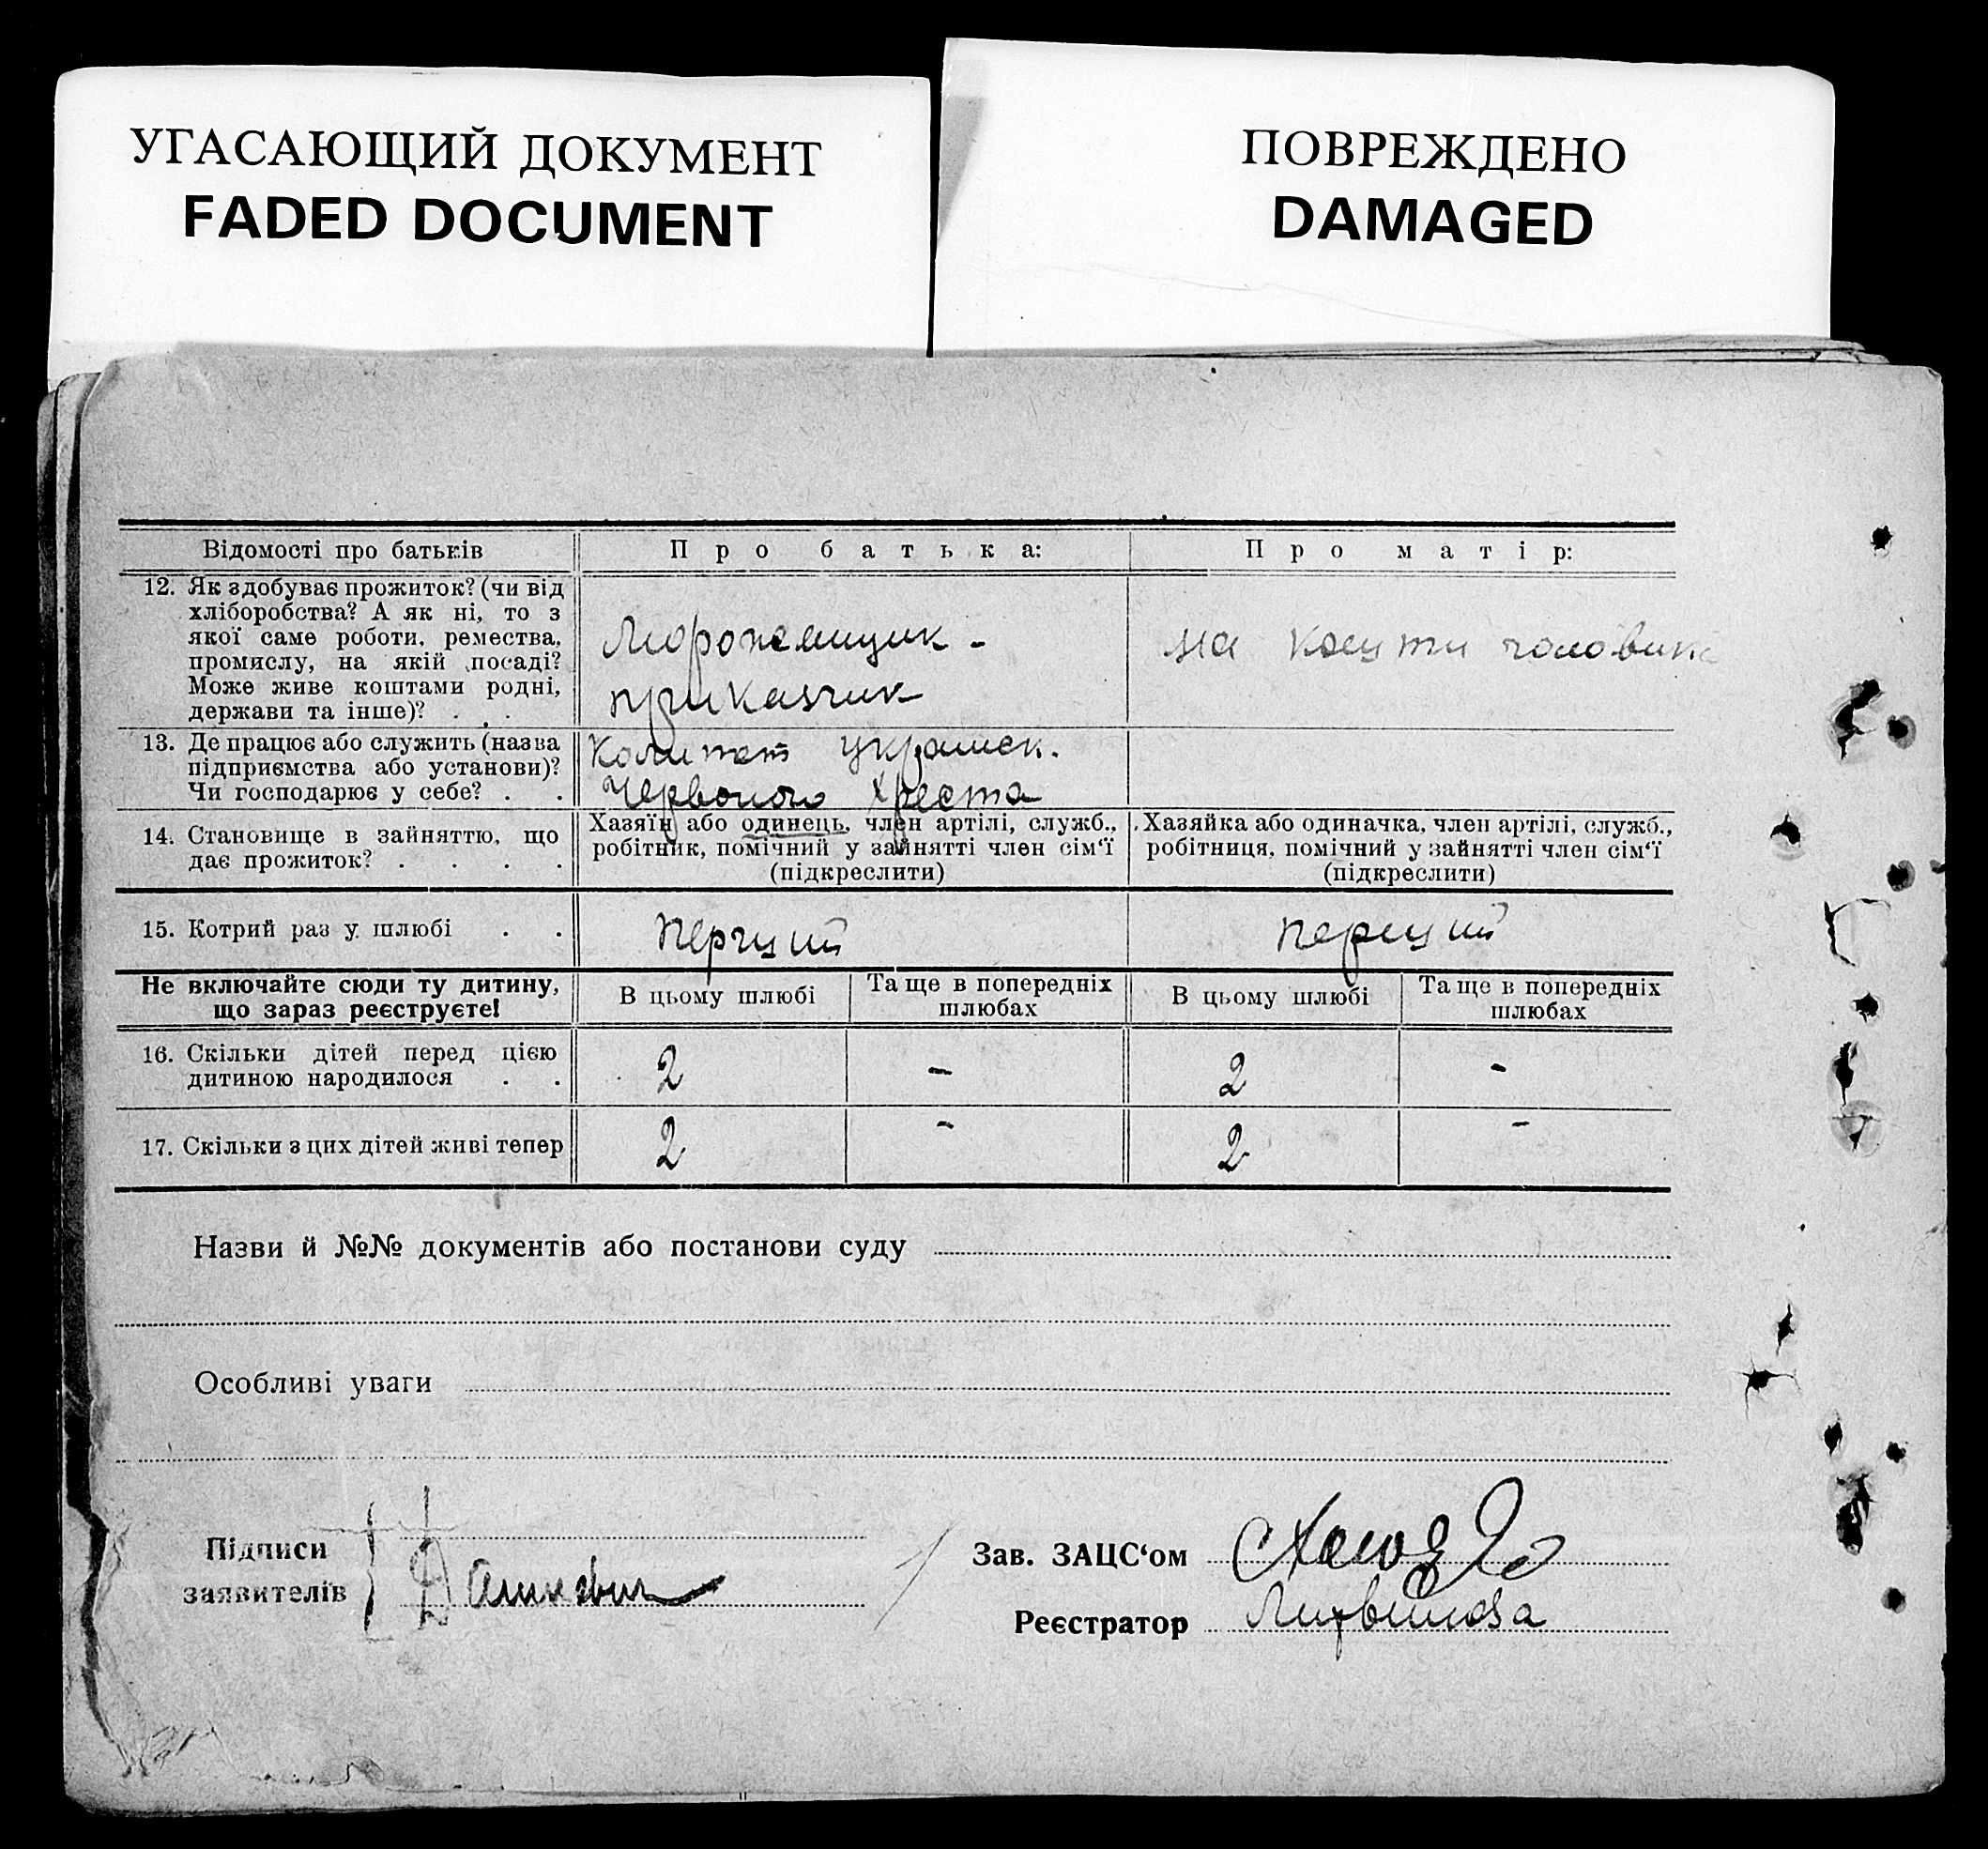 УГАСАЮЩИЙ ДОКУМЕНТ
FADED DOCUMENT
ПОВРЕЖДЕНО
DAMAGED
Відомості про батьків
Про батька:
Про матір:
12. Як здобуває прожиток? (чи від
хліборобства? А як ні, то з
якої саме роботи, ремества,
промислу, на якій посаді?
Може живе коштами родні,
держави та інше)? . . .
Мороженщик -
приказчик
на кошти чоловика
13. Де працює або служить (назва
підприємства або установи)?
Чи господарює у себе? . .
Комитет Украинск.
Червоного Хреста
14. Становище в зайняттю, що
дає прожиток? . . . .
Хазяїн або одинець, член артілі, служб.,
робітник, помічний у зайнятті член сім‘ї
(підкреслити)
Хазяйка або одиначка, член артілі, служб.,
робітниця, помічний у зайнятті член сім‘ї
(підкреслити)
15. Котрий раз у шлюбі . .
перший
перший
Не включайте сюди ту дитину,
що зараз реєструєте!
В цьому шлюбі
Та ще в попередніх
шлюбах
В цьому шлюбі
Та ще в попередніх
шлюбах
16. Скільки дітей перед цією
дитиною народилося . .
2 - 2 -
17. Скільки з цих дітей живі тепер
2 - 2 -
Назви й №№ документів або постанови суду
Особливі уваги
Підписи
заявителів
Зав. ЗАЦС‘ом
Реєстратор Литвинова